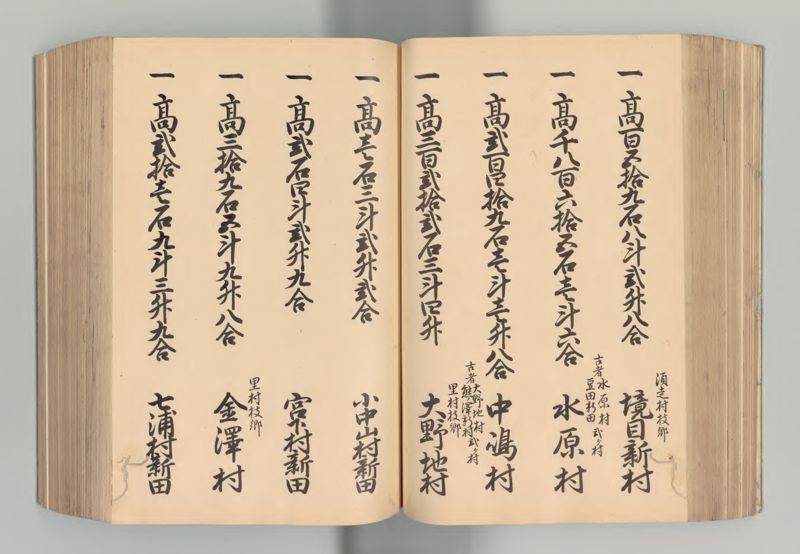 一 高百五拾九石八斗弐升八合 須走村枝郷 境目新村
一 高千八百六拾五石壱斗六合 古者水原村豆田新田弐ヶ村 水原村
一 高弐百四拾九石壱斗壱升八合 中嶋村
一 高三百弐拾弐石三斗四升 古者大野地村熊澤新村弐ヶ村 里村枝郷 大野地村
一 高壱石三斗弐升弐合 小中山村新田
一 高弐石四斗弐升九合 宮下村新田
一 高三拾九石五斗九升八合 里村枝郷 金澤村
一 高弐拾壱石九斗三升九合 七浦村新田